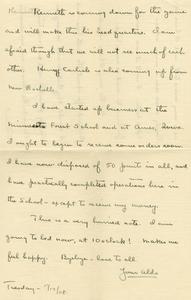 Kenneth is coming down for the game
and will make this his head quarters. I am
afraid though that we will not see much of each
other. Henry Carlisle is also coming up from
New
I have started up business at the
Minnesota Forest School and at Ames, Iowa.
I ought to begin to receive some orders soon.
I have now disposed of 50 joint in all, and
have practically completed operations here in
the School - except to receive my money.
This is a very hurried note. I am
going to bed now, at 10 oclock! Makes me
feel happy. Bye bye - love to all.
Your Aldo
Tuesday -